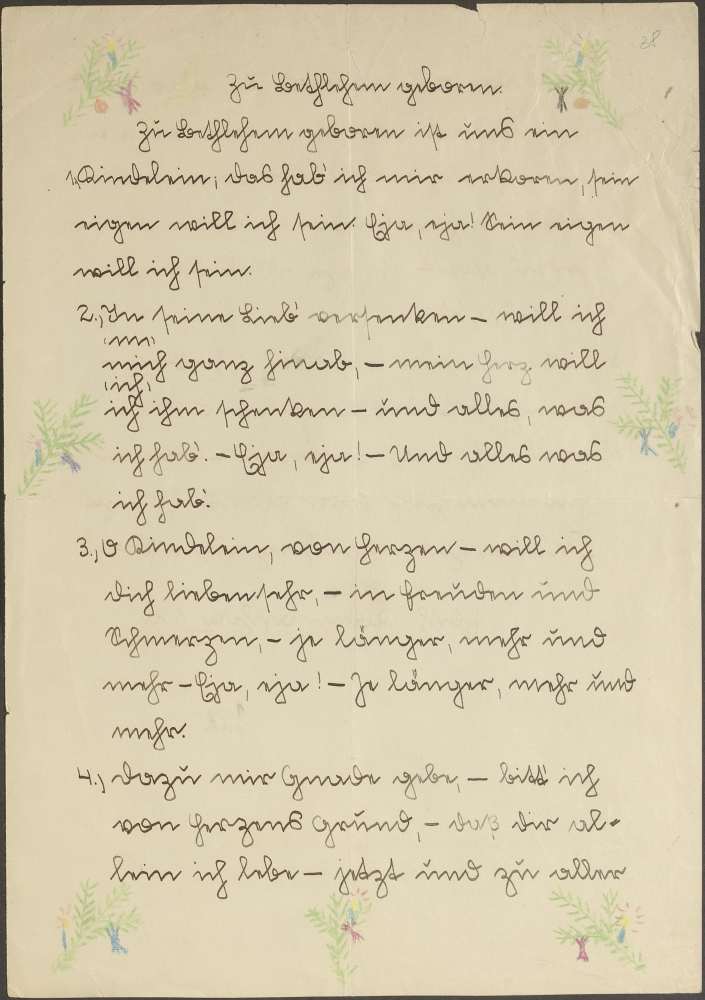 28
Zu Bethlehem geboren.
Zu Bethlehem geboren ist uns ein
1.) Kindelein; das hab' ich mir erkoren, sein
eigen will ich sein. Eja, eja! Sein eigen
will ich sein.
2.) In seine Lieb' versenken – will ich
(m)
mich ganz hinab, – mein Herz will
(ich)
ich ihm schenken – und alles, was
ich hab'. – Eja, eja! – Und alles was
ich hab'.
3.) O Kindelein, von Herzen – will ich
dich lieben sehr, – in Freuden und
Schmerzen, – je länger, mehr und
mehr – Eja, eja! – Je länger, mehr und
mehr.
4.) Dazu mir Gnade gebe, – bitt' ich
von Herzens Grund, – daß dir al-
lein ich lebe – jetzt und zu aller